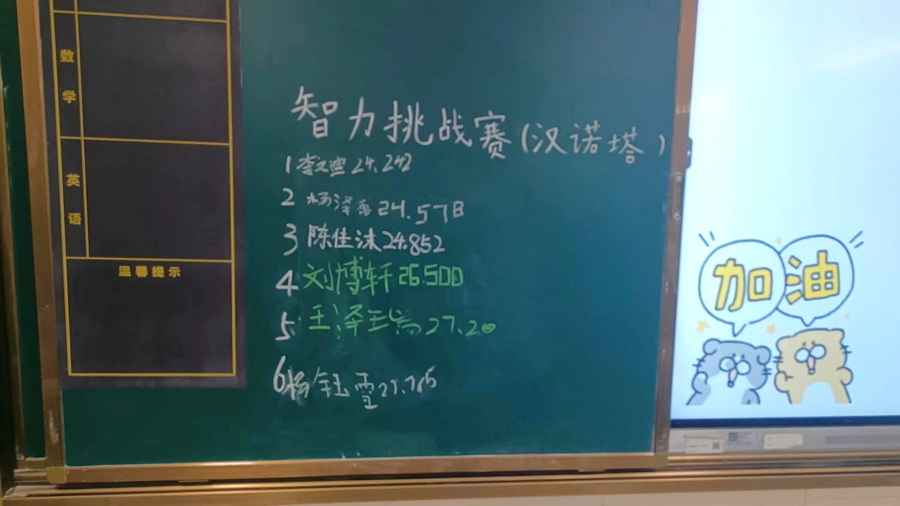 数学
英语
温馨提示
智力挑战赛(汉诺塔)
1 李 24.242
2 杨泽 24.578
3 陈佳沫 24.852
4 刘博轩 26.500
5 王泽 27.20
6 杨钰雪
加油